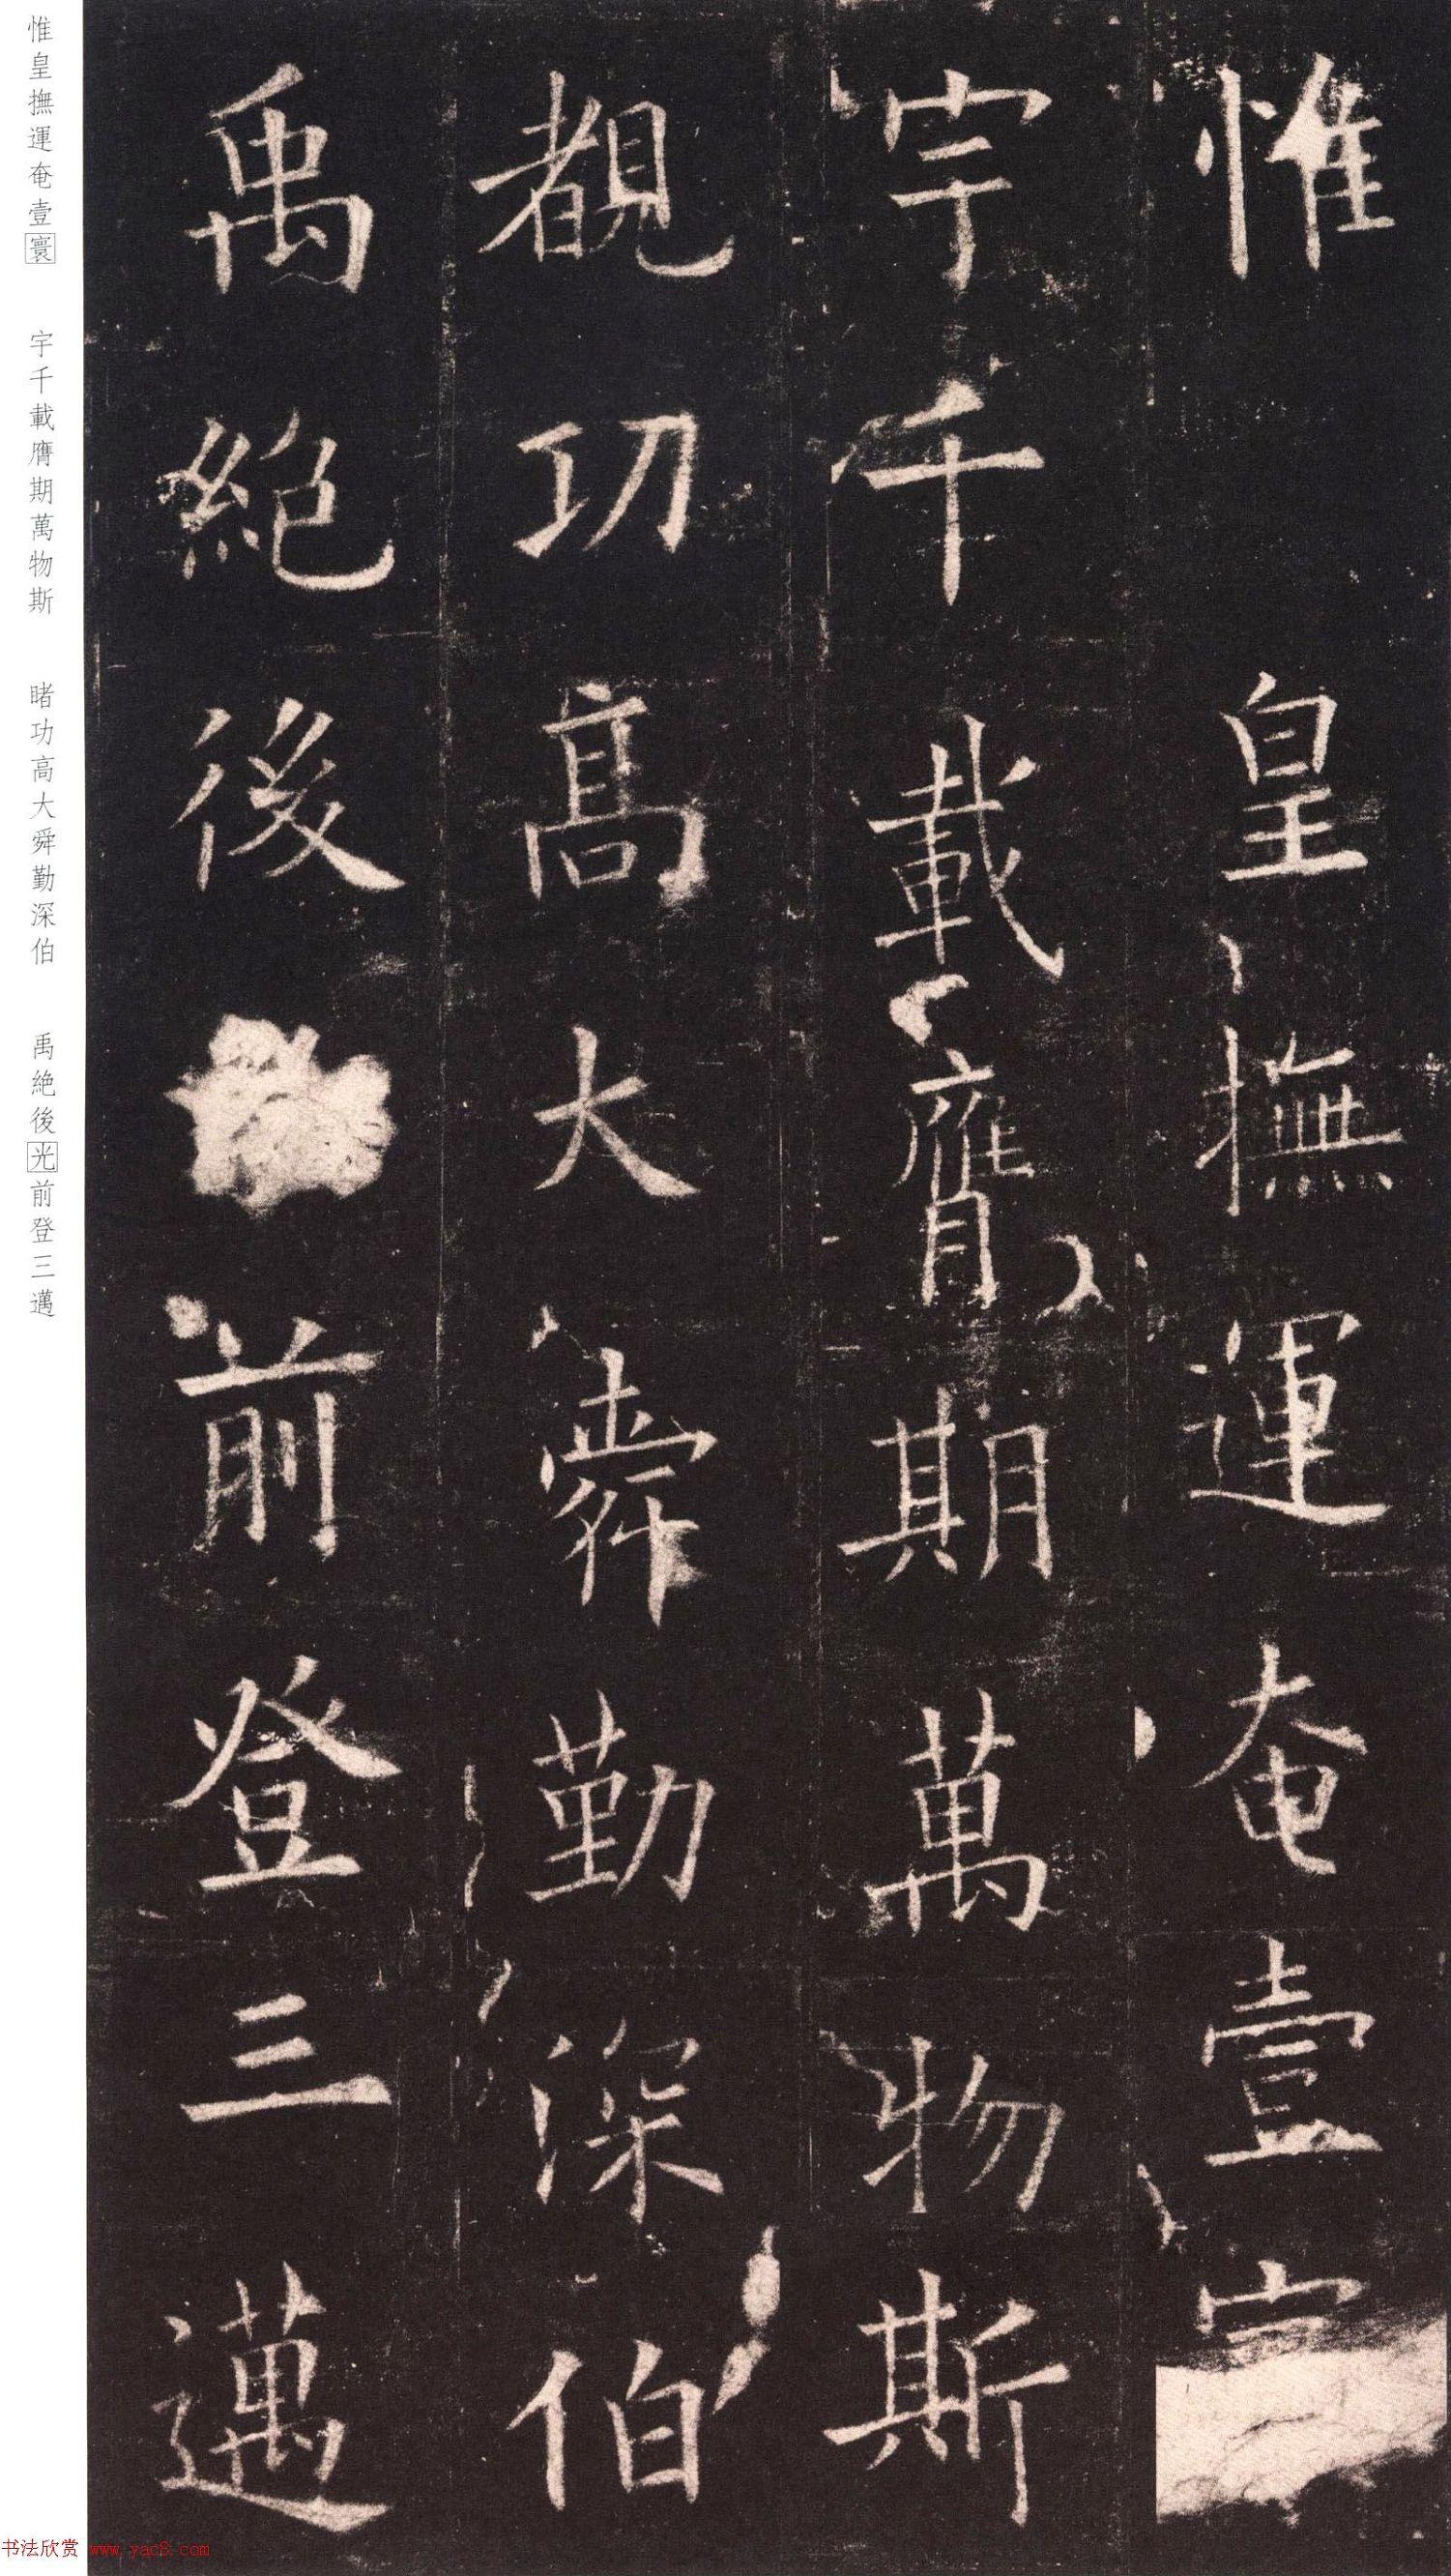 惟皇撫運奄壹
宇千載膺期萬物斯
覩功高大舜勤深伯
禹絶後前登三邁
惟皇撫運奄壹寰 宇千載膺期萬物斯 睹功高大舜勤深伯 禹絶後光前登三邁
书法欣赏 www.yac8.com